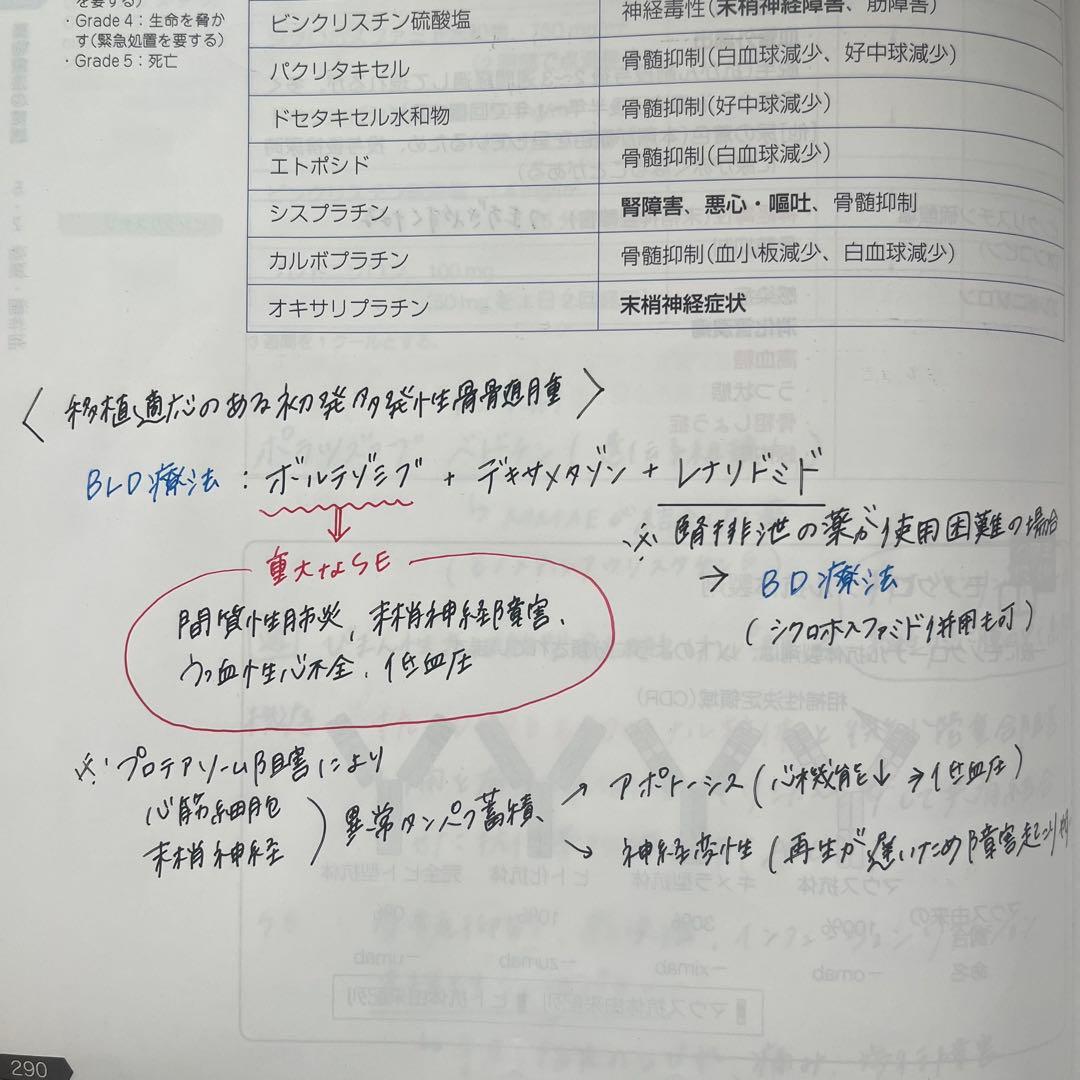 を要する)
・Grade 4：生命を脅か
す(緊急処置を要する)
・Grade 5：死亡
ビンクリスチン硫酸塩 神経毒性(末梢神経障害、筋障害)
パクリタキセル 骨髄抑制(白血球減少、好中球減少)
ドセタキセル水和物 骨髄抑制(好中球減少)
エトポシド 骨髄抑制(白血球減少)
シスプラチン 腎障害、悪心・嘔吐、骨髄抑制
カルボプラチン 骨髄抑制(血小板減少、白血球減少)
オキサリプラチン 末梢神経症状
〈移植適応のある初発多発性骨髄腫〉
BLD療法：ボルテゾミブ + デキサメタゾン + レナリドミド
※腎排泄の薬が使用困難の場合
→ BD療法
(シクロホスファミド併用も可)
重大なSE
間質性肺炎、末梢神経障害、
うっ血性心不全、低血圧
※プロテアソーム阻害により
心筋細胞
末梢神経
)異常タンパク蓄積、
→ アポトーシス (心機能↓ ⇒ 低血圧)
→ 神経変性 (再生が遅いため障害起こり
290